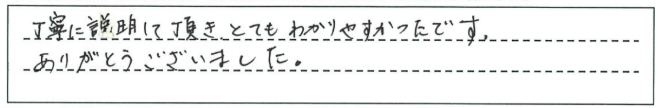 丁寧に説明して頂き、とてもわかりやすかったです。
ありがとうございました。